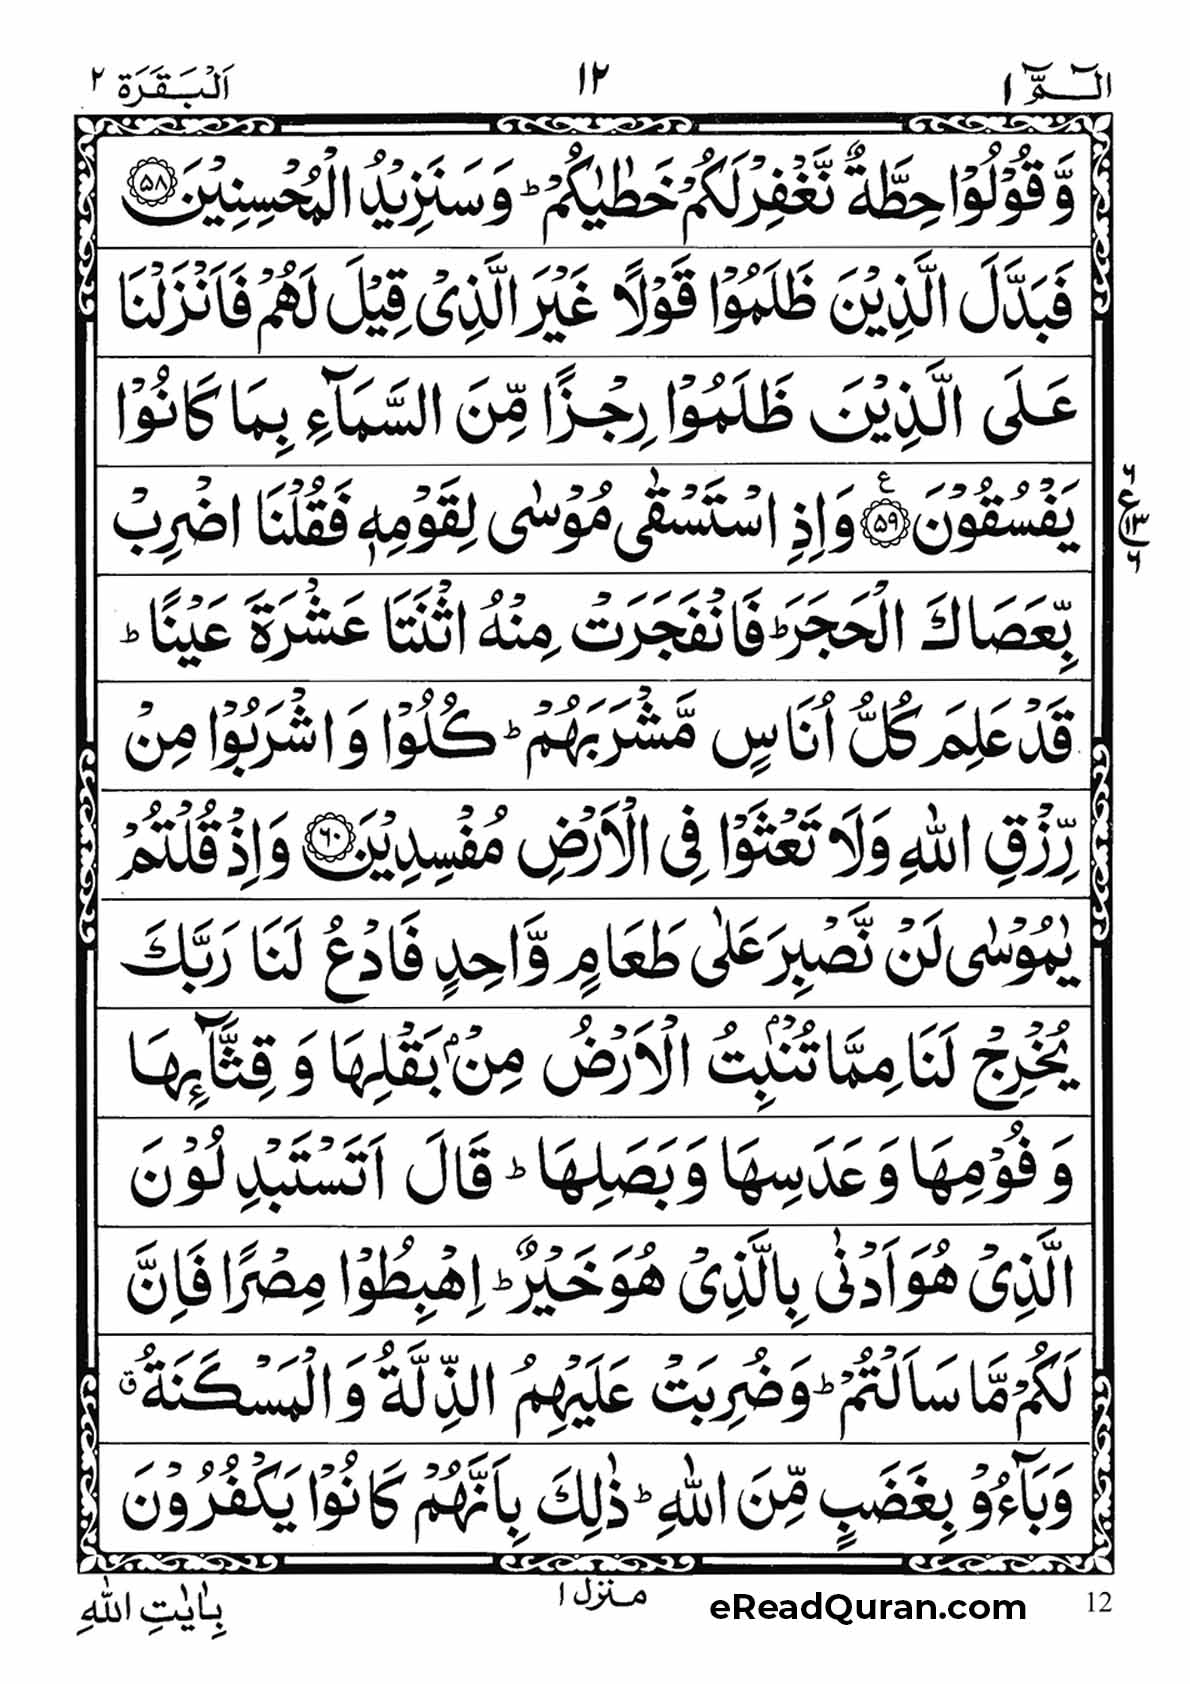 الٓمّٓ ١ ١٢ اَلْبَقَرَة ٢
وَّقُوْلُوْا حِطَّةٌ نَّغْفِرْ لَكُمْ خَطٰيٰكُمْ ؕ وَسَنَزِيْدُ الْمُحْسِنِيْنَ ۝۵۸
فَبَدَّلَ الَّذِيْنَ ظَلَمُوْا قَوْلًا غَيْرَ الَّذِىْ قِيْلَ لَهُمْ فَاَنْزَلْنَا
عَلَى الَّذِيْنَ ظَلَمُوْا رِجْزًا مِّنَ السَّمَآءِ بِمَا كَانُوْا
يَفْسُقُوْنَ ۝۵۹ ع وَاِذِ اسْتَسْقٰى مُوْسٰى لِقَوْمِهٖ فَقُلْنَا اضْرِبْ
بِّعَصَاكَ الْحَجَرَ ؕ فَانْفَجَرَتْ مِنْهُ اثْنَتَا عَشْرَةَ عَيْنًا ؕ
قَدْ عَلِمَ كُلُّ اُنَاسٍ مَّشْرَبَهُمْ ؕ كُلُوْا وَاشْرَبُوْا مِنْ
رِّزْقِ اللّٰهِ وَلَا تَعْثَوْا فِى الْاَرْضِ مُفْسِدِيْنَ ۝۶۰ وَاِذْ قُلْتُمْ
يٰمُوْسٰى لَنْ نَّصْبِرَ عَلٰى طَعَامٍ وَّاحِدٍ فَادْعُ لَنَا رَبَّكَ
يُخْرِجْ لَنَا مِمَّا تُنْۢبِتُ الْاَرْضُ مِنْۢ بَقْلِهَا وَقِثَّآئِهَا
وَفُوْمِهَا وَعَدَسِهَا وَبَصَلِهَا ؕ قَالَ اَتَسْتَبْدِلُوْنَ
الَّذِىْ هُوَ اَدْنٰى بِالَّذِىْ هُوَ خَيْرٌ ؕ اِهْبِطُوْا مِصْرًا فَاِنَّ
لَكُمْ مَّا سَاَلْتُمْ ؕ وَضُرِبَتْ عَلَيْهِمُ الذِّلَّةُ وَالْمَسْكَنَةُ ق
وَبَآءُوْ بِغَضَبٍ مِّنَ اللّٰهِ ؕ ذٰلِكَ بِاَنَّهُمْ كَانُوْا يَكْفُرُوْنَ
بِاٰيٰتِ اللّٰهِ
منزل ۱
eReadQuran.com
12